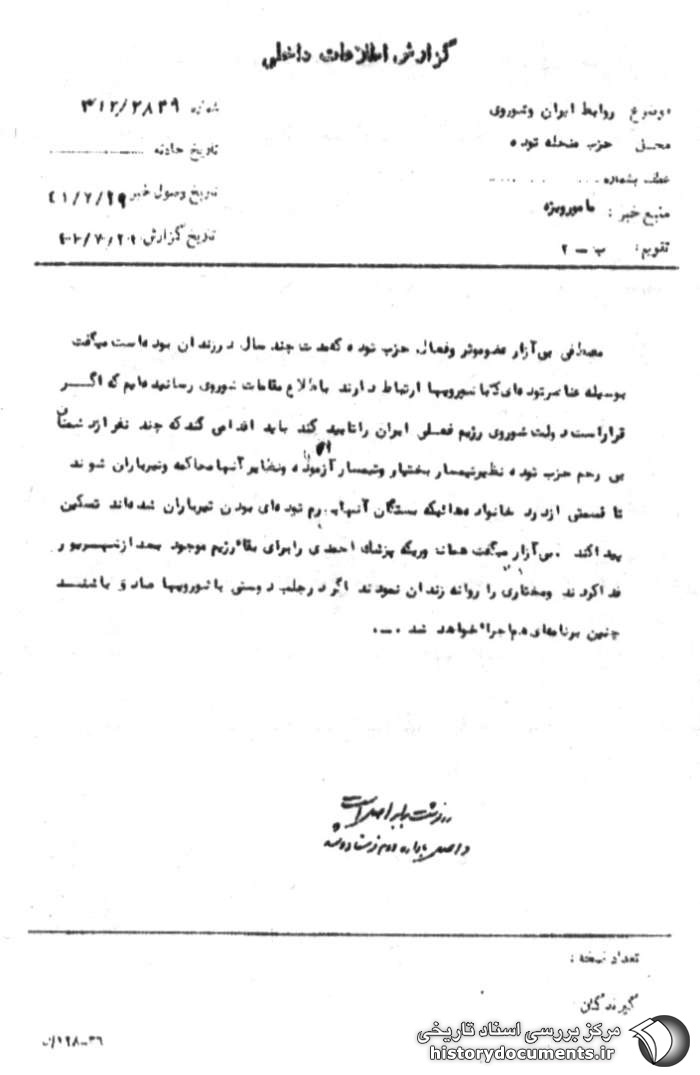 گزارش اطلاعات داخلی
موضوع روابط ایران وشوروی
شماره ۳۱۲/۲۸۳۹
محل حزب منحله توده
تاریخ حادثه
عطف بشماره
تاریخ وصول خبر ۴۱/۷/۲۹
منبع خبر : مامورویژه
تاریخ گزارش
تقویم : ب - ۲
مصطفی بی‌آزار عضوموثر وفعال حزب توده که‌مدت چند سال درزندان بوده‌است میگفت
بوسیله عناصرتوده‌ای که‌باشورویها ارتباط دارند باطلاع مقامات شوروی رسانیده‌ایم که اگر
قراراست دولت شوروی رژیم فعلی ایران راتایید کند باید اقدامی کندکه چند نفر ازدشمنان
بی رحم حزب توده نظیرتیمسار بختیار وتیمسار آزموده ونظایر آنهامحاکمه وتیرباران شوند
تا قسمتی ازدرد خانواده‌هائیکه بستگان آنهابجرم توده‌ای بودن تیرباران شده‌اند تسکین
پیداکند . بی‌آزار میگفت همانطوریکه پزشک احمدی رابرای بقاء‌رژیم موجود بعد ازشهریور
فداکردند ومختاری را روانه زندان نمودند اگردرجلب دوستی باشورویها صادق باشند
چنین برنامه‌ای هم‌اجراء‌خواهد شد .-.
تعداد نسخه :
گیرندگان
۱۲۸-۳۶
مرکز بررسی اسناد تاریخی
historydocuments.ir